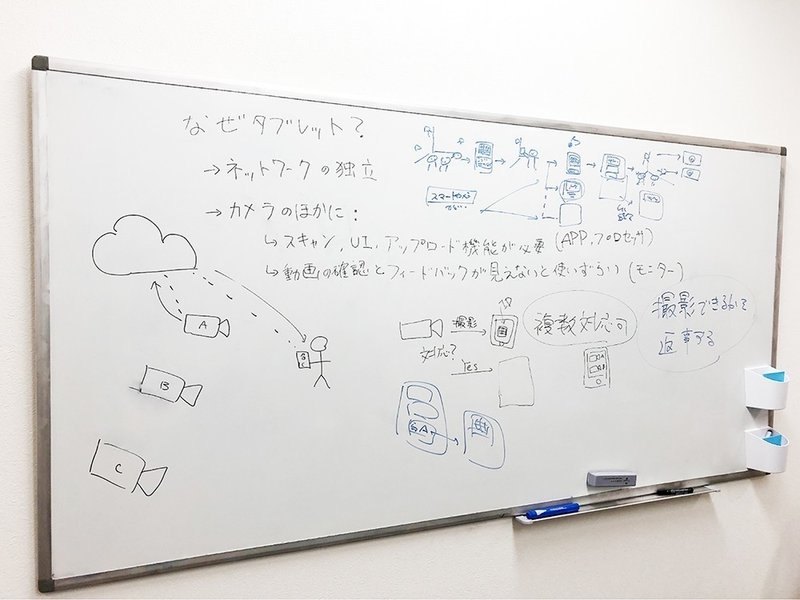 なぜタブレット?
→ネットワークの独立
→カメラのほかに:
↳スキャン、UI、アップロード機能が必要(APP,プロセッサ)
↳動画の確認とフィードバックが見えないと使いずらい(モニター)
A
B
C
撮影
対応?
Yes
複数対応可
撮影できるかを
返事する